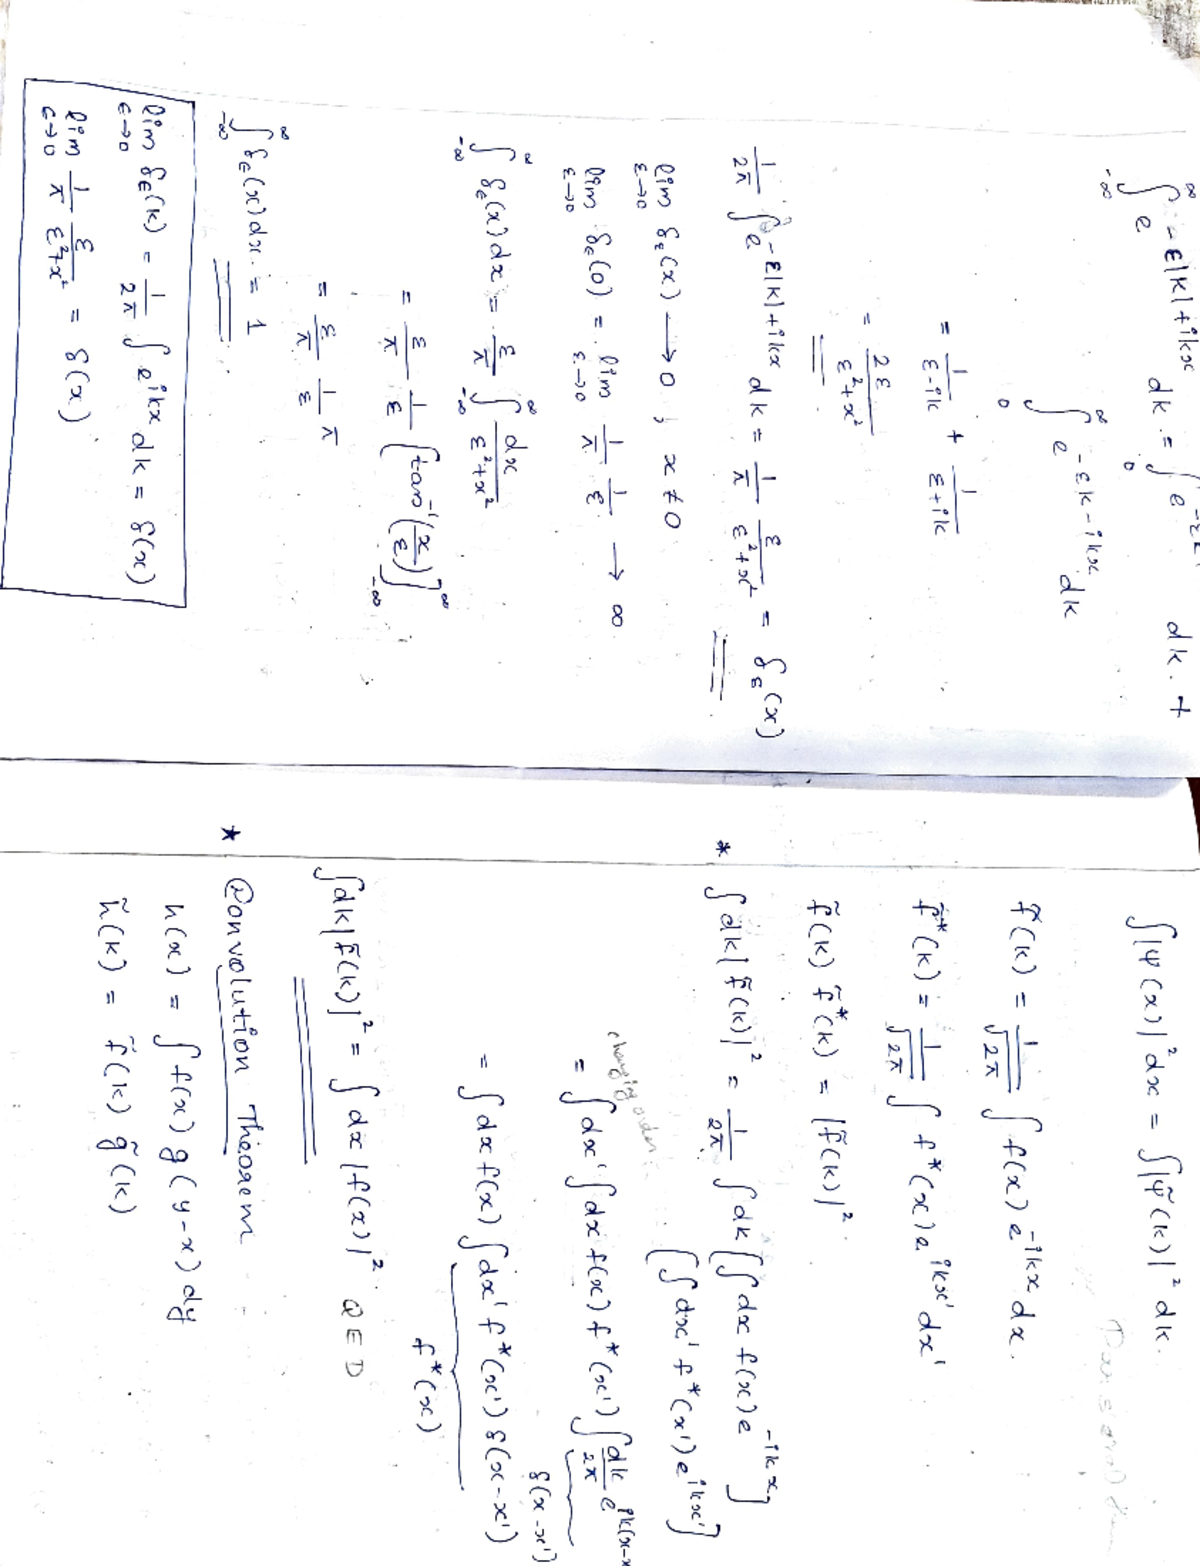 ∫_{-∞}^{∞} e^{-ε|k|+ikx} dk = ∫_0 dk. +
∫_0^{∞} e^{-εk-ikx} dk
= 1/(ε-ik) + 1/(ε+ik)
= 2ε/(ε²+x²)
1/2π ∫ e^{-ε|k|+ikx} dk = 1/π ε/(ε²+x²) = δ_ε(x)
lim_{ε→0} δ_ε(x) → 0 ; x ≠ 0
lim_{ε→0} δ_ε(0) = lim_{ε→0} 1/π 1/ε → ∞
∫_{-∞}^{∞} δ_ε(x) dx = ε/π ∫_{-∞}^{∞} dx/(ε²+x²)
= ε/π 1/ε [tan⁻¹(x/ε)]_{-∞}^{∞}
= ε/π 1/ε π
∫_{-∞}^{∞} δ_ε(x) dx = 1
lim_{ε→0} δ_ε(k) = 1/2π ∫ e^{ikx} dk = δ(x)
lim_{ε→0} 1/π ε/(ε²+x²) = δ(x)
∫|ψ(x)|² dx = ∫|ψ̃(k)|² dk.
f̃(k) = 1/√2π ∫ f(x) e^{-ikx} dx.
f̃*(k) = 1/√2π ∫ f*(x) e^{ikx'} dx'
f̃(k) f̃*(k) = |f̃(k)|².
* ∫dk|f̃(k)|² = 1/2π ∫dk [∫dx f(x) e^{-ikx}]
[∫dx' f*(x') e^{ikx'}]
changing order
= ∫dx' ∫dx f(x) f*(x') ∫ dk/2π e^{ik(x-x
δ(x-x')
= ∫dx f(x) ∫dx' f*(x') δ(x-x')
f*(x)
∫dk|f̃(k)|² = ∫dx |f(x)|². QED
* Convolution Theorem
h(x) = ∫ f(x) g(y-x) dy
h̃(k) = f̃(k) g̃(k)